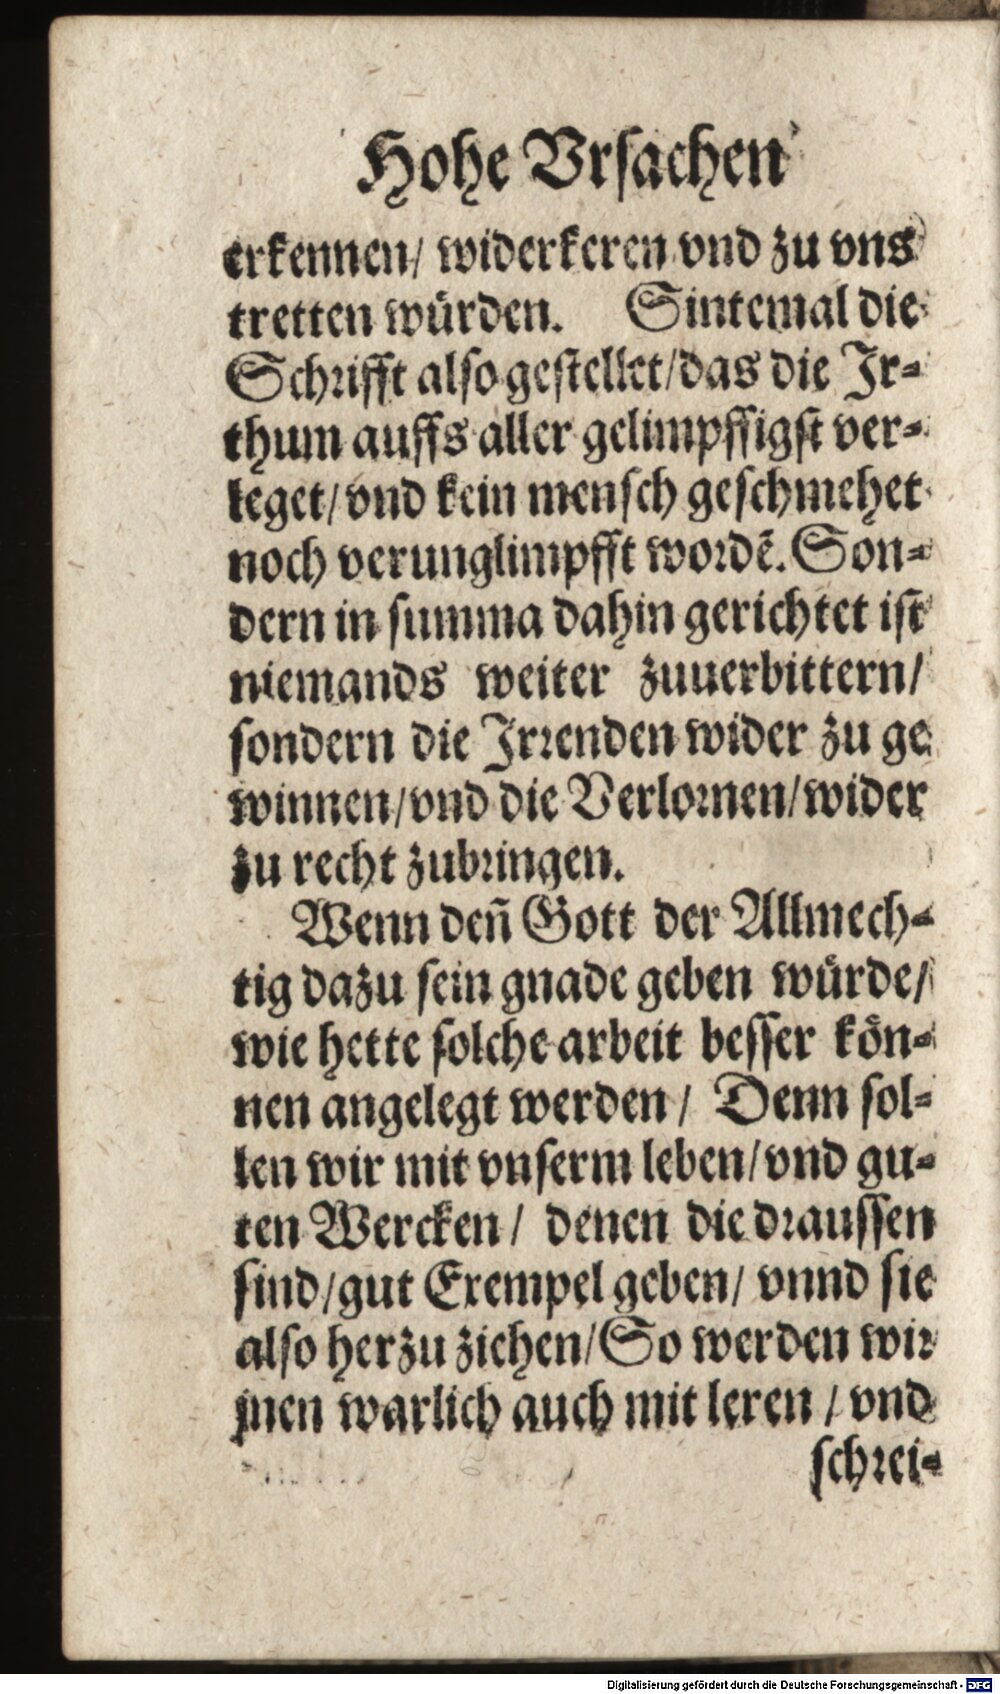 Hohe Vrsachen
erkennen/ widerkeren vnd zu vns
tretten würden. Sintemal die
Schrifft also gestellet/das die Jr-
thum auffs aller gelimpffigst ver-
leget/vnd kein mensch geschmehet
noch verunglimpfft wordẽ. Son-
dern in summa dahin gerichtet ist
niemands weiter zuuerbittern/
sondern die Jrrenden wider zu ge
winnen/vnd die Verlornen/wider
zu recht zubringen.
Wenn deñ Gott der Allmech-
tig dazu sein gnade geben würde/
wie hette solche arbeit besser kön-
nen angelegt werden / Denn sol-
len wir mit vnserm leben/vnd gu-
ten Wercken / denen die draussen
sind/gut Exempel geben/ vnnd sie
also herzu ziehen/So werden wir
jnen warlich auch mit leren / vnd
schrei-
Digitalisierung gefördert durch die Deutsche Forschungsgemeinschaft - DFG